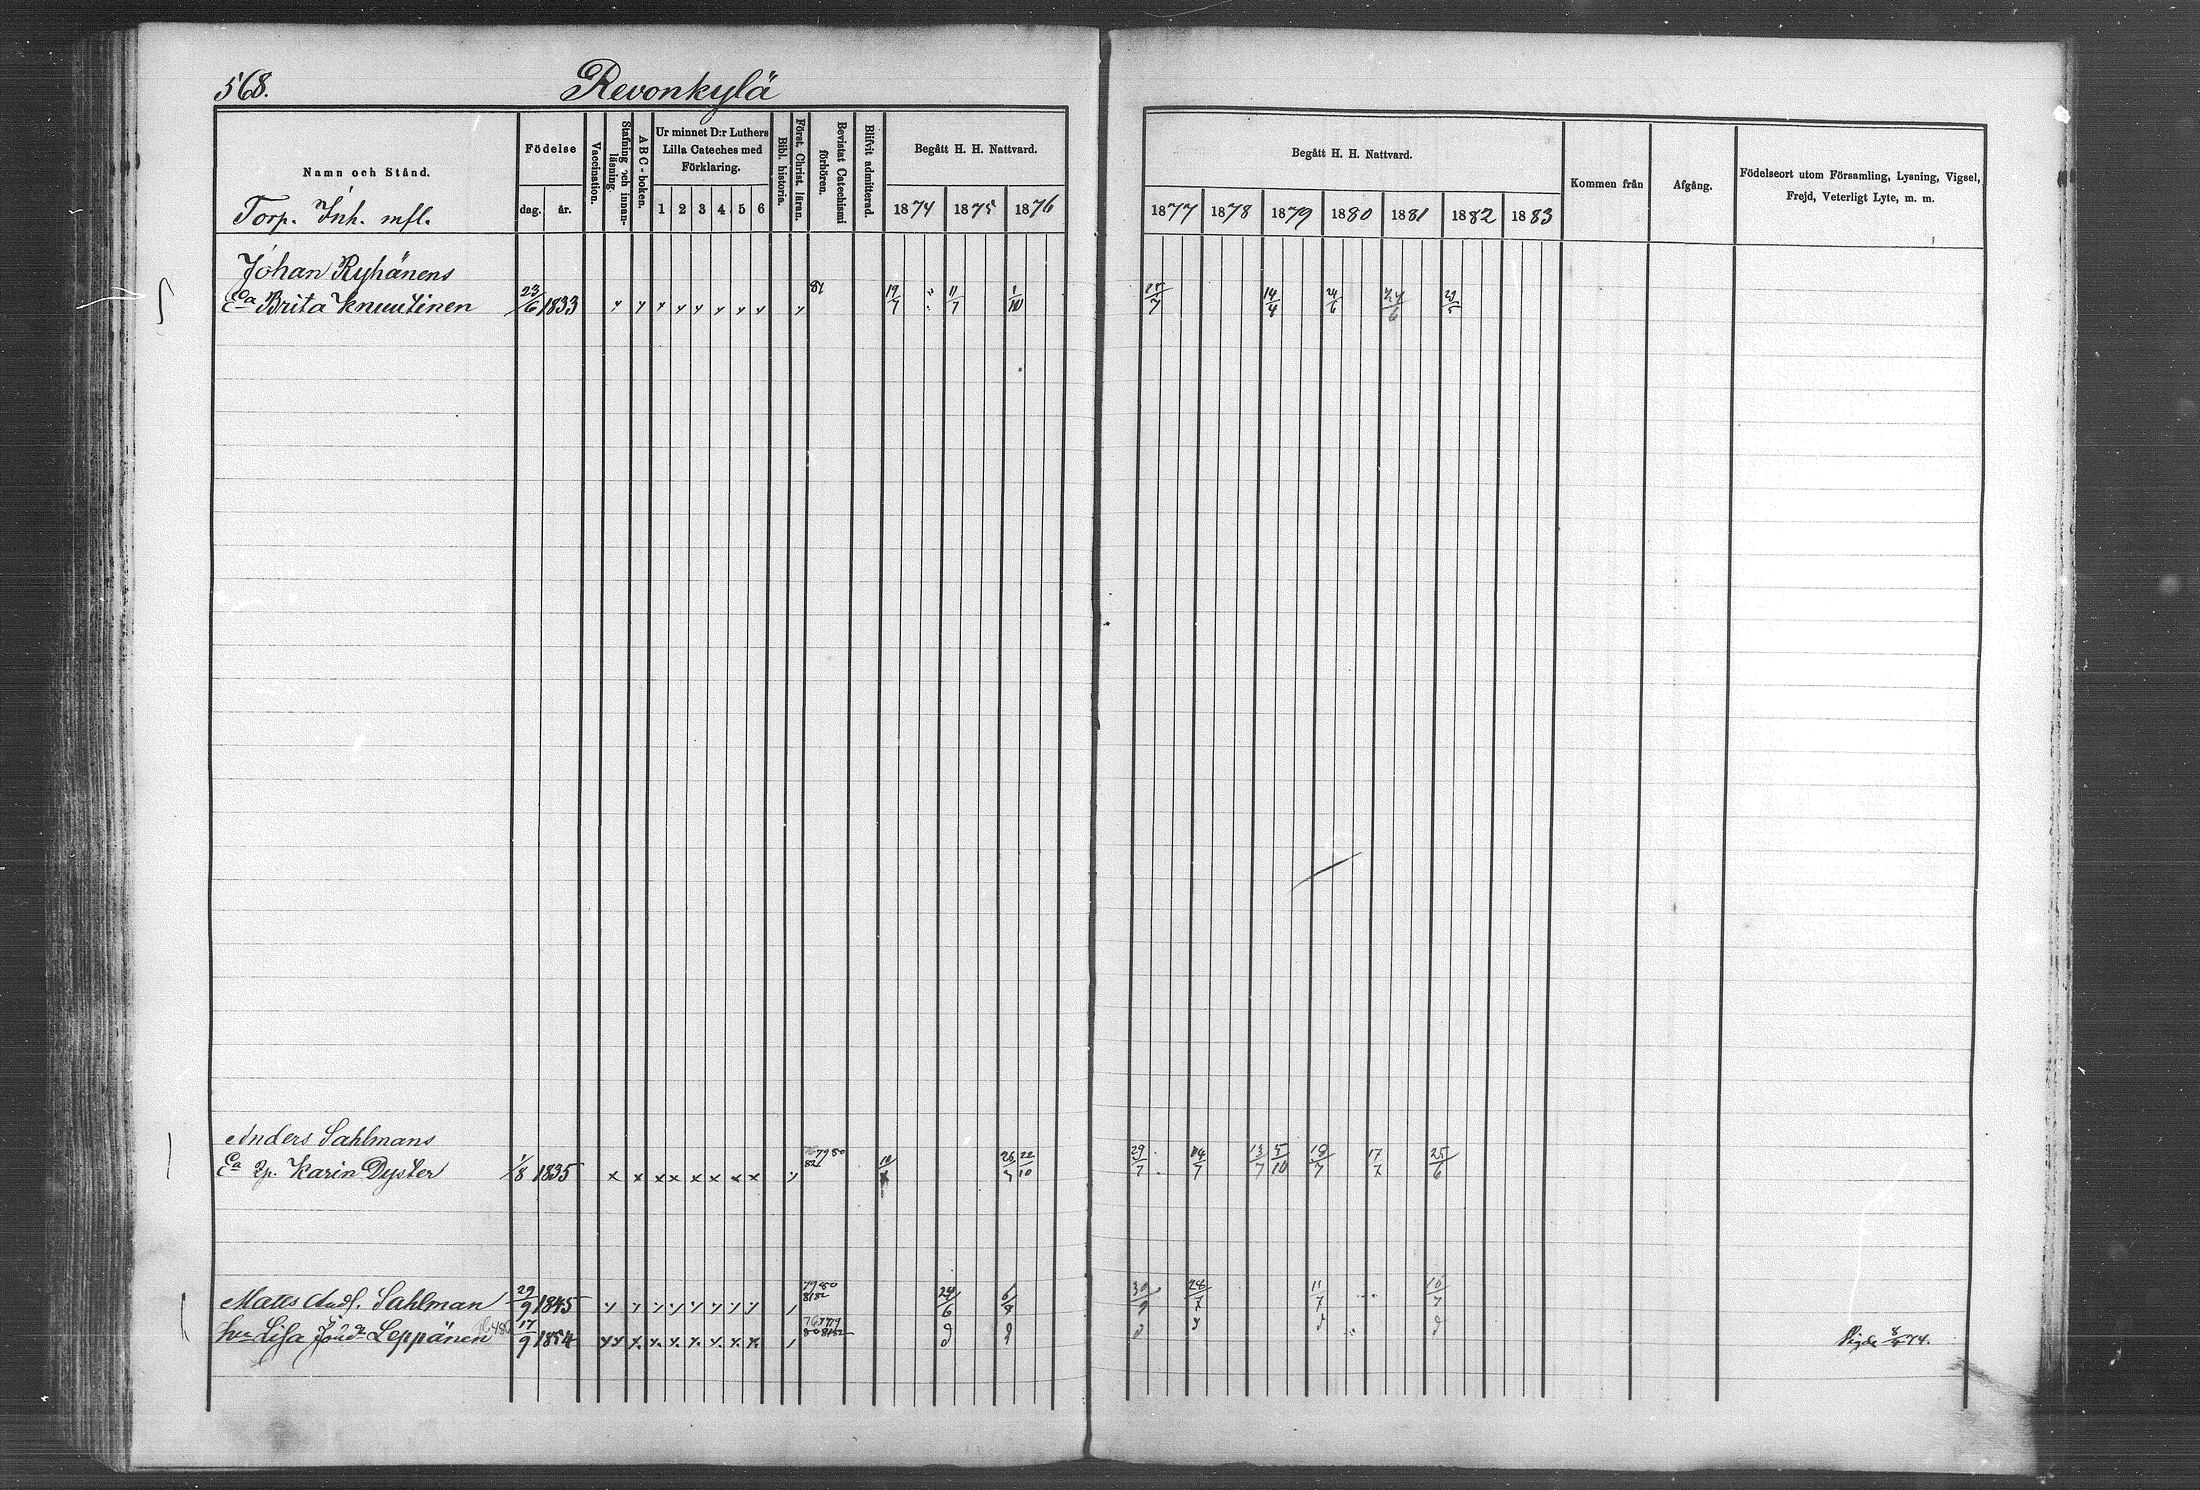 568. Revonkylä
Namn och Stånd.
Torp. Inh. mfl.
Födelse
dag. år.
Vaccination.
Stafning och innan-läsning.
ABC-boken.
Ur minnet D:r Luthers Lilla Cateches med Förklaring.
1 2 3 4 5 6
Bibl. historia.
Först. Christ. läran.
Bevistat Catechismi förhören.
Blifvit admitterad.
Begått H. H. Nattvard.
1874 1875 1876
Begått H. H. Nattvard.
1877 1878 1879 1880 1881 1882 1883
Kommen från
Afgång.
Födelseort utom Församling, Lysning, Vigsel,
Frejd, Veterligt Lyte, m. m.
Johan Ryhänens
Ea Brita Knuutinen 23/6 1833 81 19/7 11/7 1/10 14/8 24/6 24/6
Anders Sahlmans
Ea Karin Dyster 1/8 1835 22/10 29/7 14/7 13/7 5/10 18/7 17/7 25/6
Matts Andl. Sahlman 29/9 1845 7980 8182 24/6 30/9 28/7 11/7 10/7
hu Lisa Leppänen 17/9 1854 Vigde 74.